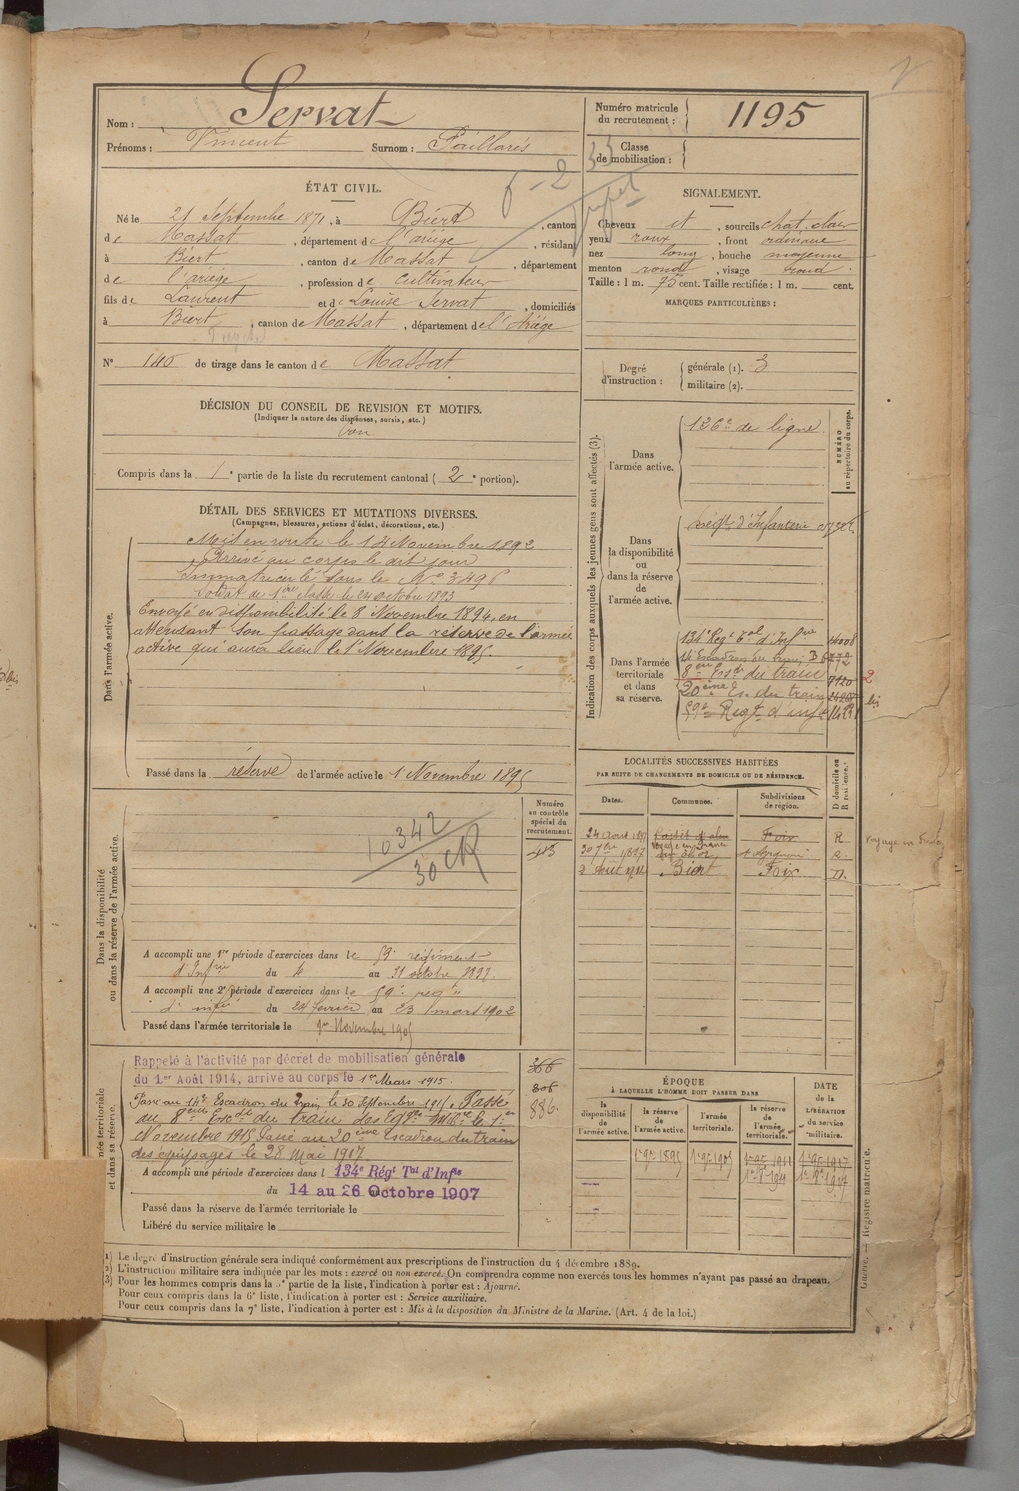 Nom : Servat
Prénoms : Vincent Surnom : Paillarès
Numéro matricule du recrutement : 1195
Classe de mobilisation :
ÉTAT CIVIL.
Né le 21 Septembre 1871, à Biert, canton
de Massat, département de l'ariége, résidant
à Biert, canton de Massat, département
de l'ariége, profession de cultivateur
fils de Laurent et de Louise Servat, domiciliés
à Biert, canton de Massat, département de l'Ariége
N° 146 de tirage dans le canton de Massat
SIGNALEMENT.
Cheveux et, sourcils chat. clair
yeux roux, front ordinaire
nez long, bouche moyenne
menton rond, visage rond.
Taille : 1 m. 75 cent. Taille rectifiée : 1 m. cent.
MARQUES PARTICULIÈRES :
Degré d'instruction : générale (1). 3
militaire (2).
DÉCISION DU CONSEIL DE REVISION ET MOTIFS.
(Indiquer la nature des dispenses, sursis, etc.)
bon
Compris dans la 1e partie de la liste du recrutement cantonal (2e portion).
DÉTAIL DES SERVICES ET MUTATIONS DIVERSES.
(Campagnes, blessures, actions d'éclat, décorations, etc.)
Dans l'armée active.
Mis en route le 14 Novembre 1892
Arrivé au corps le dit jour
Immatriculé sous le N° 3496
Soldat de 1ère classe le 24 octobre 1893
Envoyé en disponibilité le 8 Novembre 1894, en
attendant son passage dans la réserve de l'armée
active qui aura lieu le 1 Novembre 1895.
Passé dans la réserve de l'armée active le 1 Novembre 1895
Indication des corps auxquels les jeunes gens sont affectés (3).
NUMÉRO au répertoire du corps.
Dans l'armée active.
126e de ligne.
Dans la disponibilité ou dans la réserve de l'armée active.
régt d'Infanterie
Dans l'armée territoriale et dans sa réserve.
134e Régt Tal d'Infrie
14 Escadron du train
8eme Esc du train 7120
20ème Es. du train
59e Regt d'inf
2
bis
LOCALITÉS SUCCESSIVES HABITÉES
PAR SUITE DE CHANGEMENTS DE DOMICILE OU DE RÉSIDENCE.
Dates. Communes. Subdivisions de région. D domicile ou R résidence.
24 Aout 1897 Foix R
30 7bre 1897 R.
Biert Foix D.
Dans la disponibilité ou dans la réserve de l'armée active.
Numéro au contrôle spécial du recrutement.
10342
30 CR
A accompli une 1re période d'exercices dans le 59e régiment
d'Infrie du 4 au 31 octobre 1897.
A accompli une 2e période d'exercices dans le 59e reg
d'infie du 24 fevrier au 23 mars 1902
Passé dans l'armée territoriale le 1er Novembre 1905
Rappelé à l'activité par décret de mobilisation générale
du 1er Août 1914, arrivé au corps le 1er Mars 1915.
Passé au 14e Escadron du Train le 30 Septembre 1915. Passé
au 8eme Esc du train des Eqges Mlres le 1er
Novembre 1915 Passé au 20ème Escadron du train
des équipages le 28 Mai 1917.
366
806
886.
A accompli une période d'exercices dans l 134e Régt Tal d'Infie
du 14 au 26 Octobre 1907
Passé dans la réserve de l'armée territoriale le
Libéré du service militaire le
ÉPOQUE
À LAQUELLE L'HOMME DOIT PASSER DANS
la disponibilité de l'armée active.
la réserve de l'armée active.
l'armée territoriale.
la réserve de l'armée territoriale.
DATE de la LIBÉRATION du service militaire.
1 9e 1895 1 9e 1905 1 9e 1911 1 9e 1917
1) Le degré d'instruction générale sera indiqué conformément aux prescriptions de l'instruction du 4 décembre 1889.
2) L'instruction militaire sera indiquée par les mots : exercé ou non exercé. On comprendra comme non exercés tous les hommes n'ayant pas passé au drapeau.
3) Pour les hommes compris dans la 5e partie de la liste, l'indication à porter est : Ajourné.
Pour ceux compris dans la 6e liste, l'indication à porter est : Service auxiliaire.
Pour ceux compris dans la 7e liste, l'indication à porter est : Mis à la disposition du Ministre de la Marine. (Art. 4 de la loi.)
Guerre. — Registre matricule.